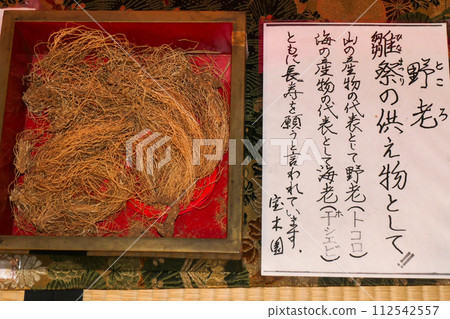 野老
ところ
雛祭の供え物として
山の産物の代表として野老(トコロ)
海の産物の代表として海老(干シエビ)
ともに長寿を願うと言われています。
宝木園
112542557